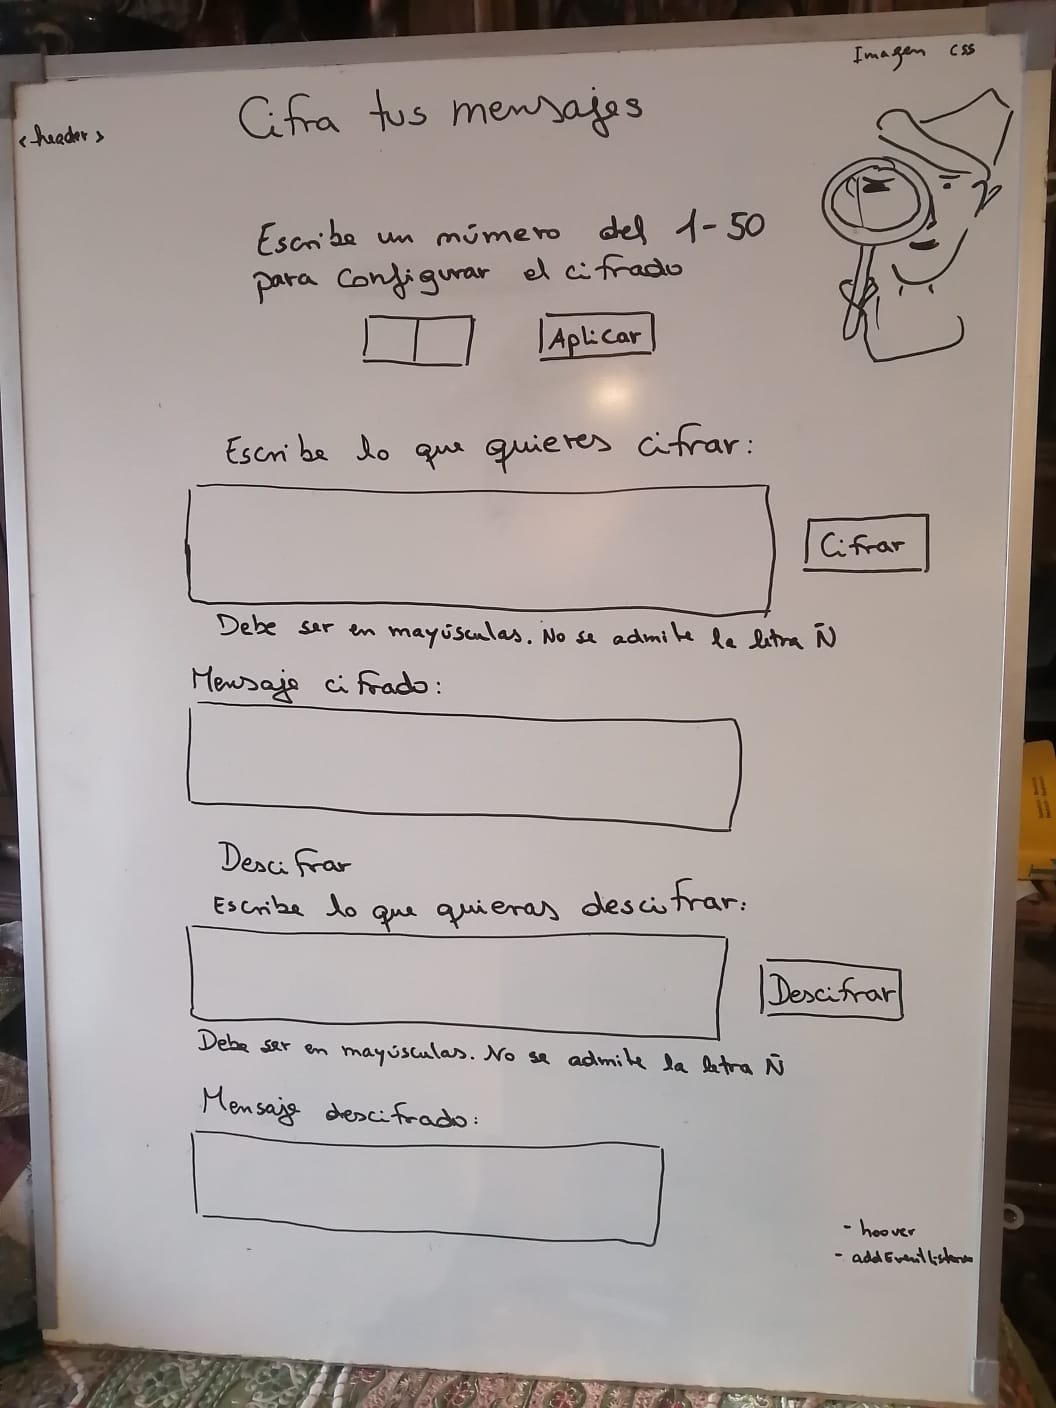 Imagen css
<header>
Cifra tus mensajes
Escribe un número del 1-50
para configurar el cifrado
Aplicar
Escribe lo que quieres cifrar:
Cifrar
Debe ser en mayúsculas. No se admite la letra Ñ
Mensaje cifrado:
Descifrar
Escribe lo que quieras descifrar:
Descifrar
Debe ser en mayúsculas. No se admite la letra Ñ
Mensaje descifrado:
- hoover
- addEventlistener